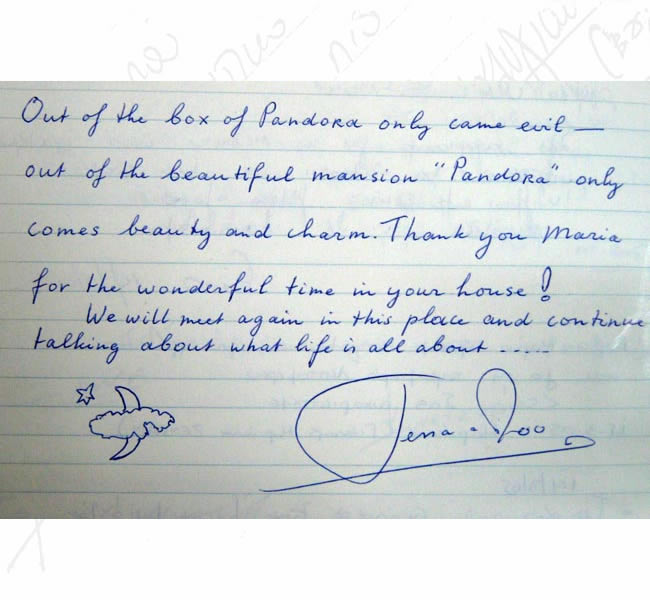 Out of the box of Pandora only came evil —
out of the beautiful mansion "Pandora" only
comes beauty and charm. Thank you Maria
for the wonderful time in your house!
We will meet again in this place and continue
talking about what life is all about .....